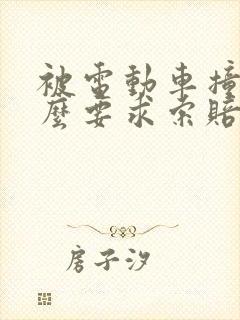 被電動車撞
麼要求索賠
房子汐